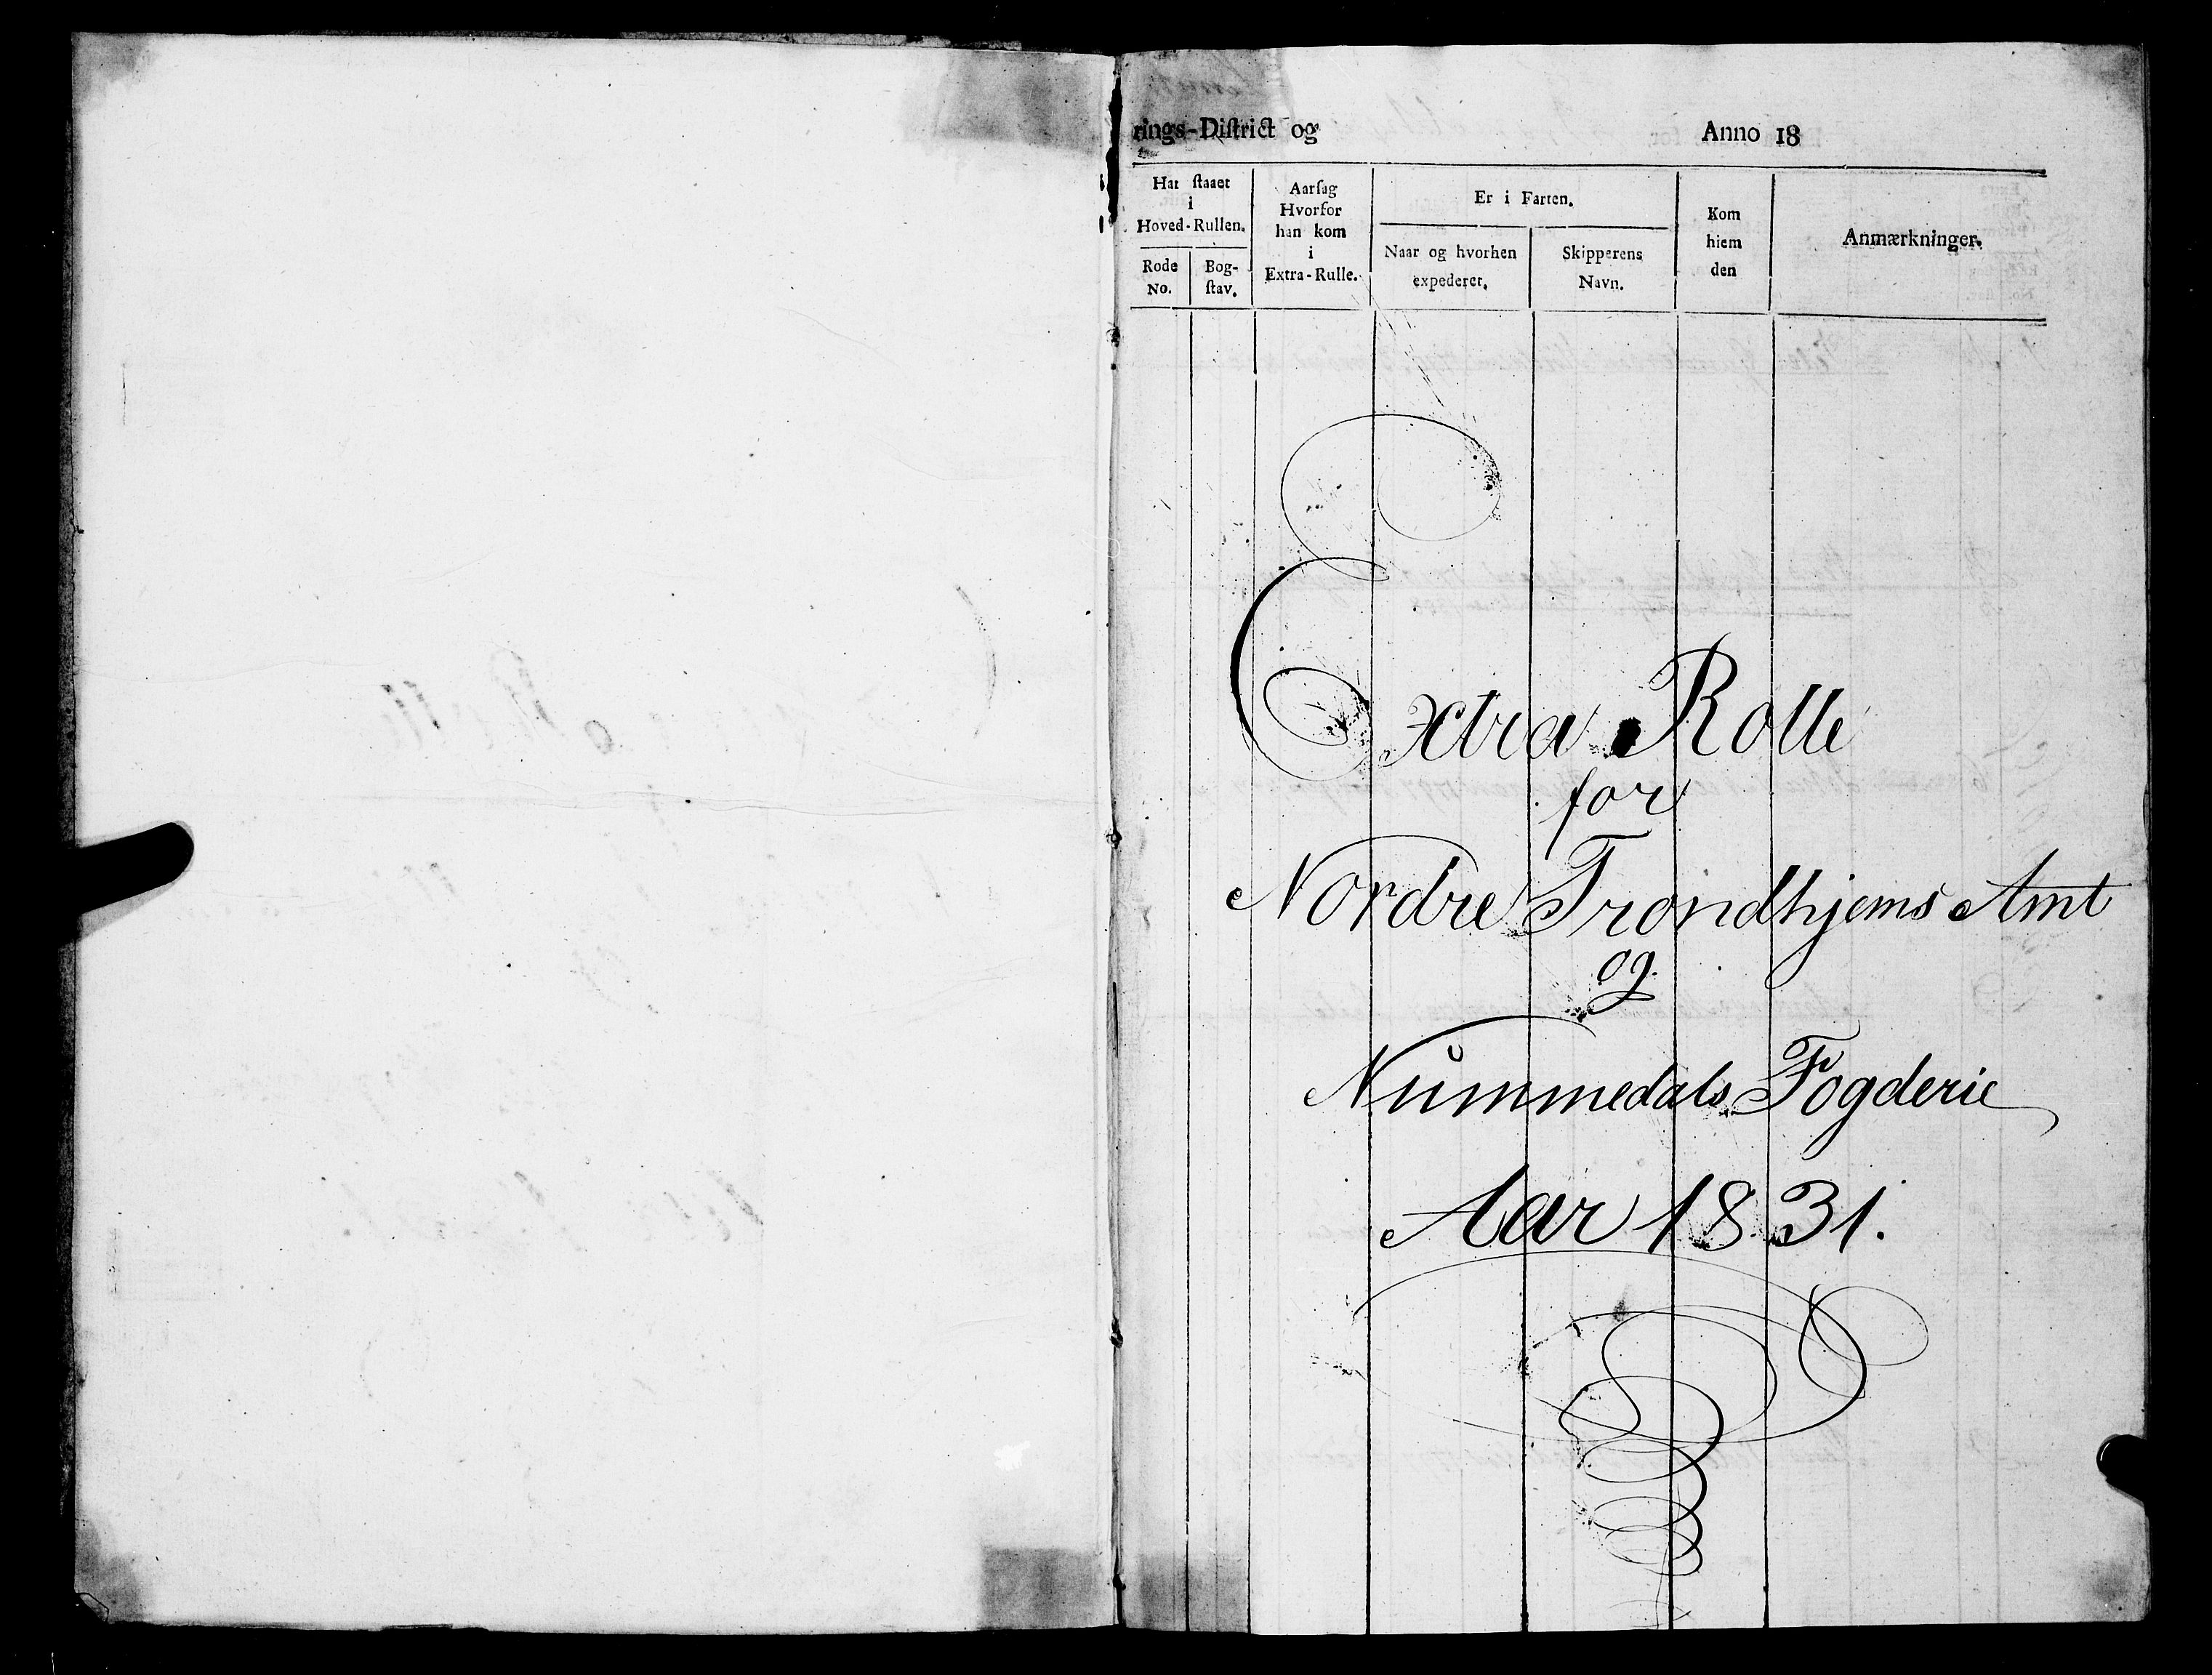 rings-District og Anno 18
Har staaet
i
Hoved-Rullen.
Rode
No.
Bog-
stav.
Aarsag
Hvorfor
han kom
i
Extra-Rulle.
Er i Farten.
Naar og hvorhen
expederet.
Skipperens
Navn.
Kom
hiem
den
Anmærkninger.
Extra Rolle
for
Nordre Trondhjems Amt
og
Nummedals Fogderie
Aar 1831.